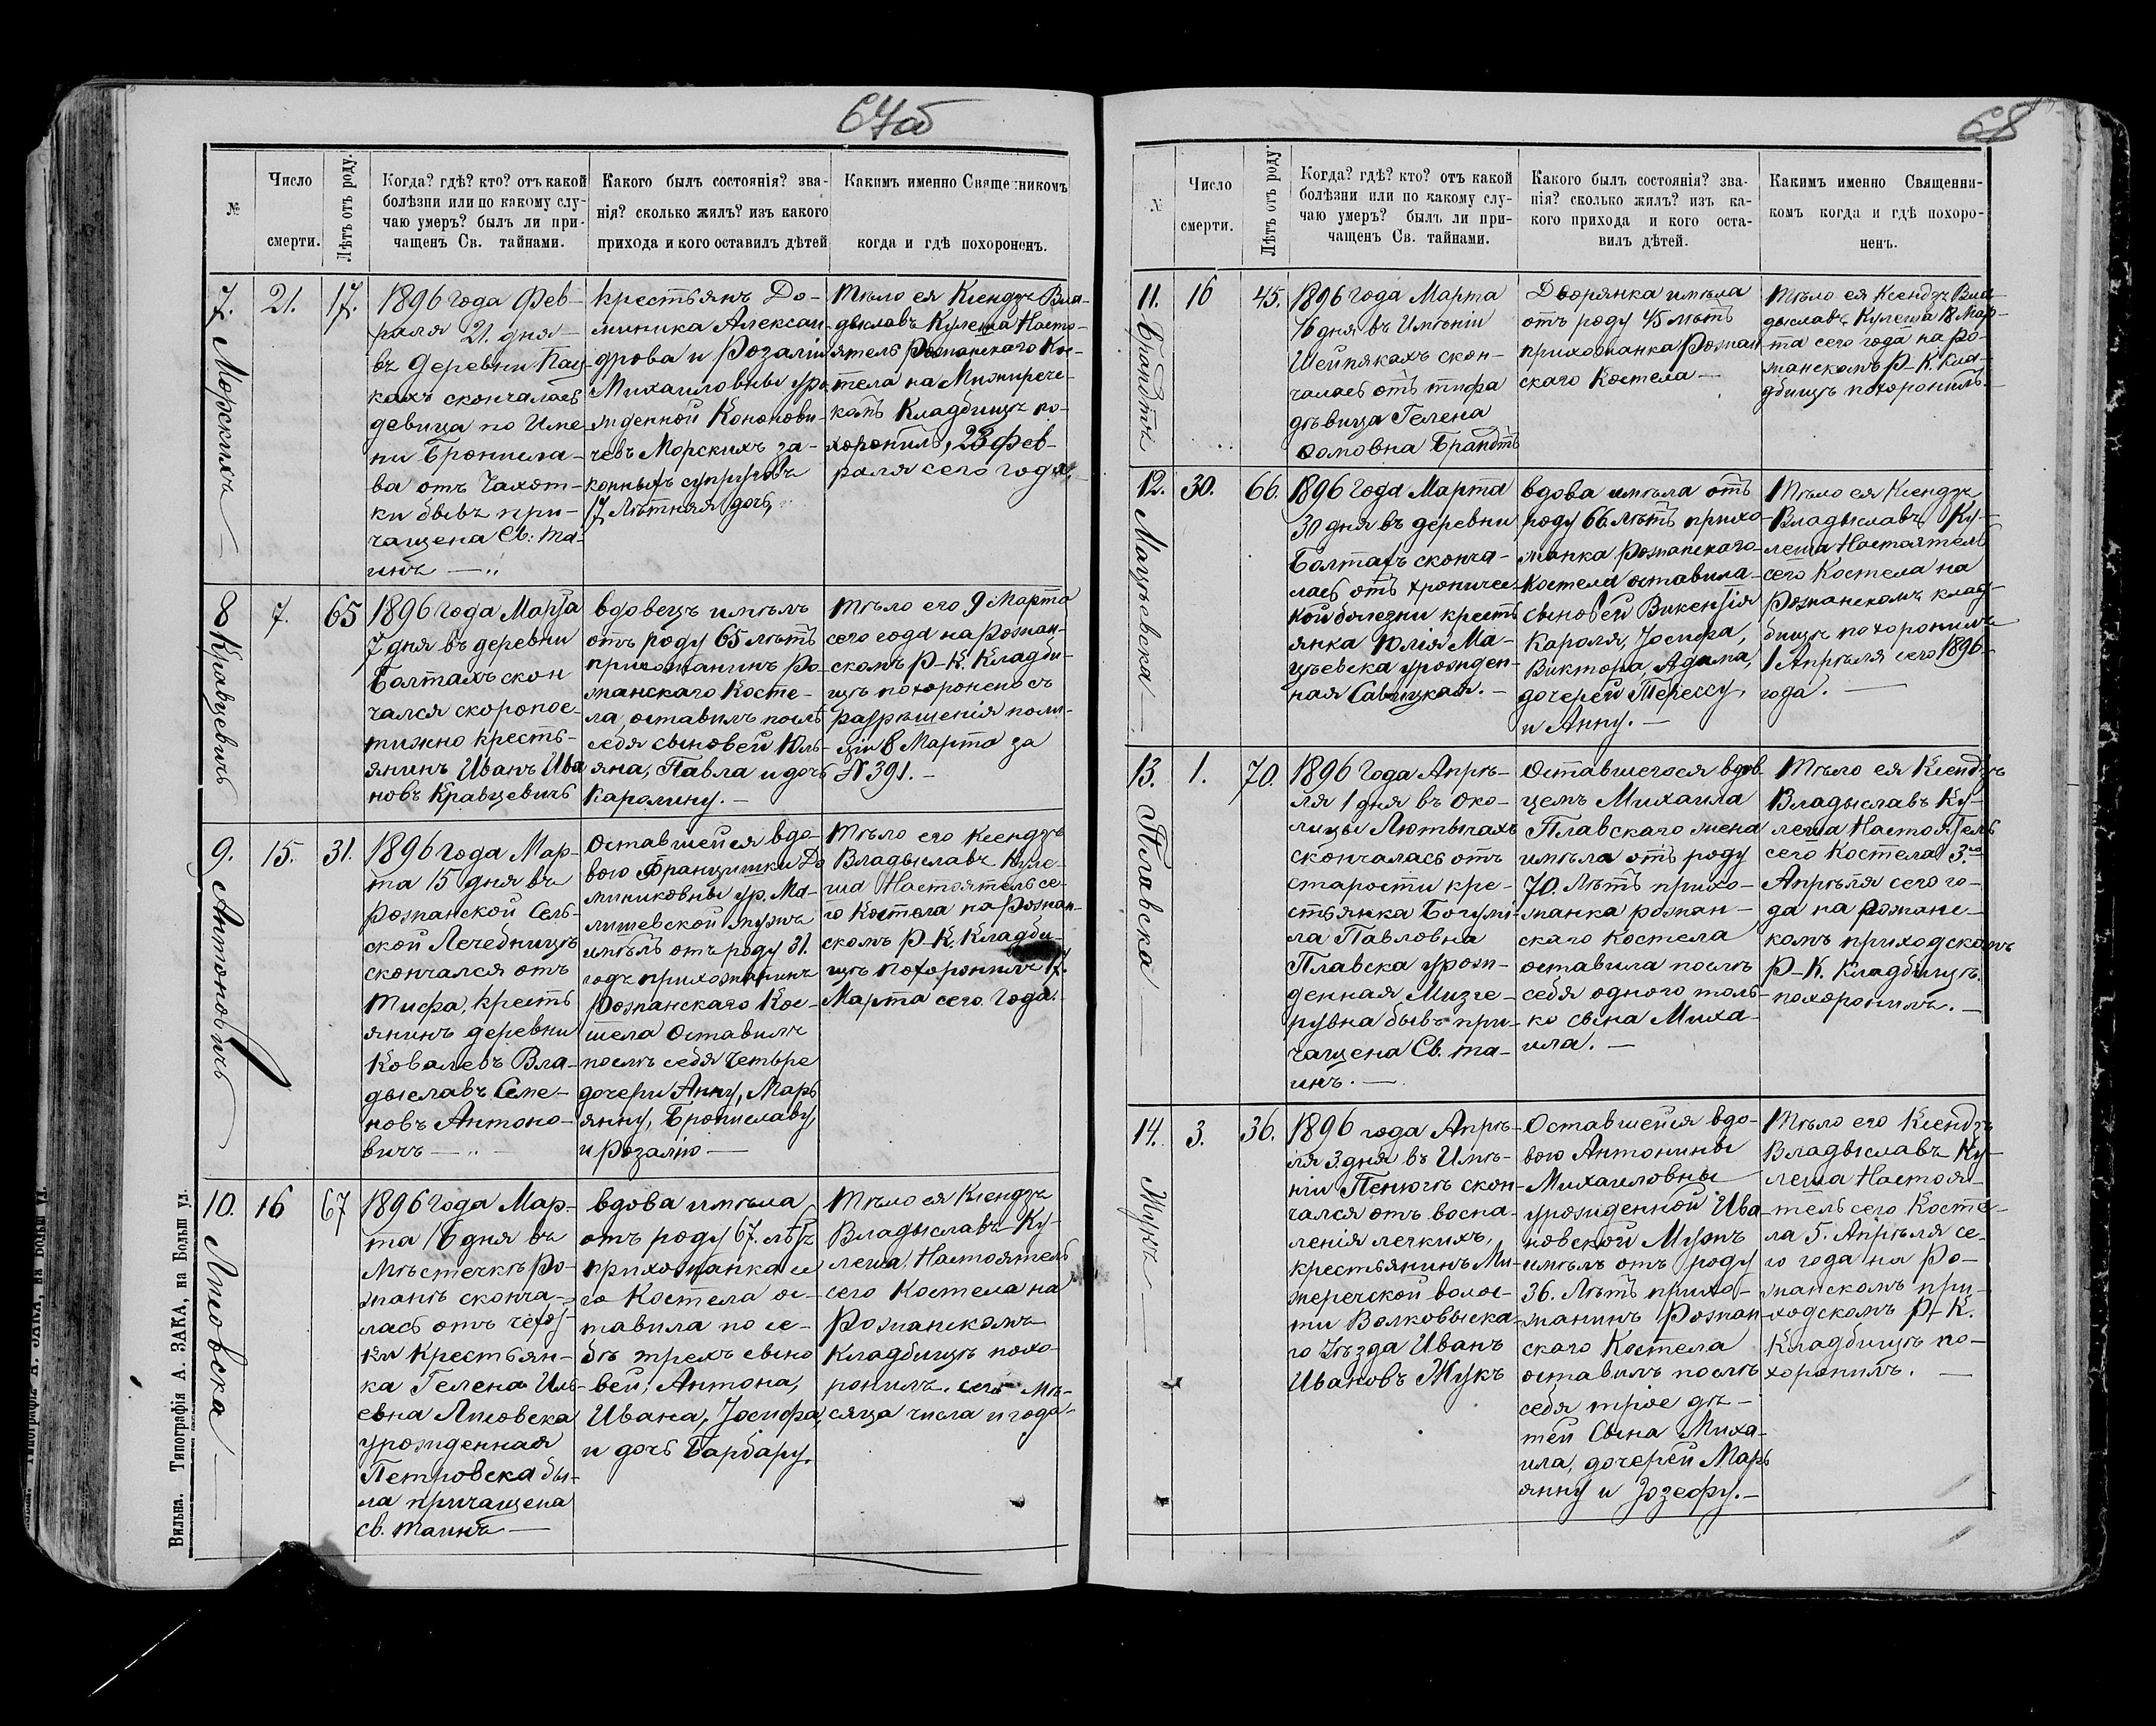 67об
№
Число
смерти.
Лѣтъ отъ роду.
Когда? гдѣ? кто? отъ какой
болѣзни или по какому слу-
чаю умеръ? былъ ли при-
чащенъ Св. тайнами.
Какого былъ состоянія? зва-
нія? сколько жилъ? изъ какого
прихода и кого оставилъ дѣтей
Какимъ именно Священникомъ
когда и гдѣ похороненъ.
7.
Морскихъ
21.
17.
1896 года Фев-
раля 21. дня
въ деревни Пац-
кахъ скончалась
девица по Име-
ни Бронисла-
ва отъ Чахот-
ки бывъ при-
чащена Св: та-
инъ
крестьянъ До-
миника Алексан
дрова и Розаліи
Михаиловны уро
жденной Кононови-
чевъ Морскихъ за-
конныхъ супруговъ
17 Лѣтняя дочь,
Тѣло ея Ксендзъ Вла-
дыславъ Кулеша Насто-
ятель Рожанского Кос-
тела на Мижирече-
комъ Кладбищѣ по-
хоронилъ, 23 Фев-
раля сего года.
8
Кравцевичъ
7.
65
1896 года Марта
7 дня въ деревни
Болтахъ скон
чался скоропос-
тижно кресть-
янинъ Иванъ Ива
новъ Кравцевичъ
вдовецъ имѣлъ
отъ роду 65 лѣтъ
прихожанинъ Ро-
жанскаго Косте-
ла, оставилъ послѣ
себя сыновей Юль-
яна, Павла и дочь
Каролину.
Тѣло его 9 Марта
сего года на Рожан-
скомъ Р-К. Кладби-
щѣ похоронено съ
разрѣшенія поли-
ціи 8 Марта за
№ 391.
9.
Антоновичъ
15.
31.
1896 года Мар-
та 15 дня въ
Рожанской Сель-
ской Лечебницѣ
скончался отъ
Тифа, кресть
янинъ деревни
Ковалевъ Вла-
дыславъ Семе-
новъ Антоно-
вичъ
Оставшейся вдо-
вою Францишки До
миниковны ур. Ма-
лишевской мужъ
имѣлъ отъ роду 31.
годъ прихожанинъ
Рожанскаго Кос-
тела Оставилъ
послѣ себя четыре
дочери Анну, Марь
янну, Брониславу,
и Розалію
Тѣло его Ксендзъ
Владыславъ Куле-
ша Настоятель се-
го Костела на Рожан-
скомъ Р-К. Кладби-
щѣ похоронилъ 17.
Марта сего года.
10.
16
67
1896 года Мар-
та 16 дня въ
Мѣстечкѣ Ро-
жанѣ сконча-
лась отъ
Крестьян-
ка Гелена
урожденная
Петровска бы-
ла причащена
св. таинъ
вдова имѣла
отъ роду 67. лѣтъ
прихожанка се
го Костела ос-
тавила по се-
бѣ трехъ сыно
вей, Антона,
Ивана, Іосифа,
и дочь Барбару.
Тѣло ея Ксендзъ
Владыславъ Ку-
леша, Настоятель
сего Костела на
Рожанскомъ
Кладбищѣ похо-
ронилъ. сего Мѣ-
сяца числа и года
Вильна. Типографія А. ЗАКА, на Больш ул.
68
№
Число
смерти.
Лѣтъ отъ роду.
Когда? гдѣ? кто? отъ какой
болѣзни или по какому слу-
чаю умеръ? былъ ли при-
чащенъ Св. тайнами.
Какого былъ состоянія? зва-
нія? сколько жилъ? изъ ка-
кого прихода и кого оста-
вилъ дѣтей.
Какимъ именно Священни-
комъ когда и гдѣ похоро-
ненъ.
11.
Брандтъ
16
45.
1896 года Марта
16 дня въ Имѣніи
Шейпякахъ скон-
чалась отъ тифа
дѣвица Гелена
Брандтъ
Дворянка имѣла
отъ роду 45 лѣтъ
прихожанка Рожан
скаго Костела
Тѣло ея Ксендзъ Вла-
дыславъ Кулеша 18 Мар-
та сего года на Ро-
жанскомъ Р-К. Кла-
дбищѣ похоронилъ.
12.
Мацѣевска
30.
66.
1896 года Марта
30 дня въ деревни
Болтахъ сконча-
лась отъ хроничес
кой болезни кресть
янка Юлия Ма-
цѣевска урожден-
ная Савицкая.
вдова имѣла отъ
роду 66 лѣтъ прихо
жанка Рожанскаго
Костела оставила
сыновей Викентія
Кароля, Іосифа,
Виктора Адама,
дочерей Терессу,
и Анну.
Тѣло ея Ксендзъ
Владыславъ Ку-
леша Настоятель
сего Костела на
Рожанскомъ клад-
бищѣ похоронилъ
1 Апрѣля сего 1896
года.
13.
Плавска
1.
70.
1896 года Апрѣ-
ля 1 дня въ Око-
лицы Лютычахъ
скончалась отъ
старости кре-
стьянка Богуми-
ла Павловна
Плавска урож-
денная Мизге-
рувна бывъ при-
чащена Св. та-
инъ.
Оставшегося вдов
цемъ Михаила
Плавскаго жена
имѣла отъ роду
70. Лѣтъ прихо-
жанка рожан-
скаго Костела
оставила послѣ
себя одного толь-
ко сына Миха-
ила.
Тѣло ея Ксендзъ
Владыславъ Ку-
леша Настоятель
сего Костела 3.го
Апрѣля сего го-
да на Рожанс-
комъ приходскомъ
Р-К. Кладбищѣ
похоронилъ.
14.
Жукъ
3.
36.
1896 года Апрѣ-
ля 3 дня въ Имѣ-
ніи Пенюгѣ скон-
чался отъ воспа-
ленія легкихъ,
крестьянинъ Ми-
жеречской волос-
ти Волковыска-
го Уѣзда Иванъ
Ивановъ Жукъ
Оставшейся вдо-
вою Антонины
Михаиловны
урожденной Ива
новской Мужъ
имѣлъ отъ роду
36. Лѣтъ прихо-
жанинъ Рожан
скаго Костела
оставилъ послѣ
себя трое дѣ-
тей Сына Миха-
ила, дочерей Марь
янну и Іозефу.
Тѣло его Ксендзъ
Владыславъ Ку-
леша Настоя-
тель сего Косте-
ла 5. Апрѣля се-
го года на Ро-
жанскомъ при-
ходскомъ Р-К.
Кладбищѣ по-
хоронилъ.